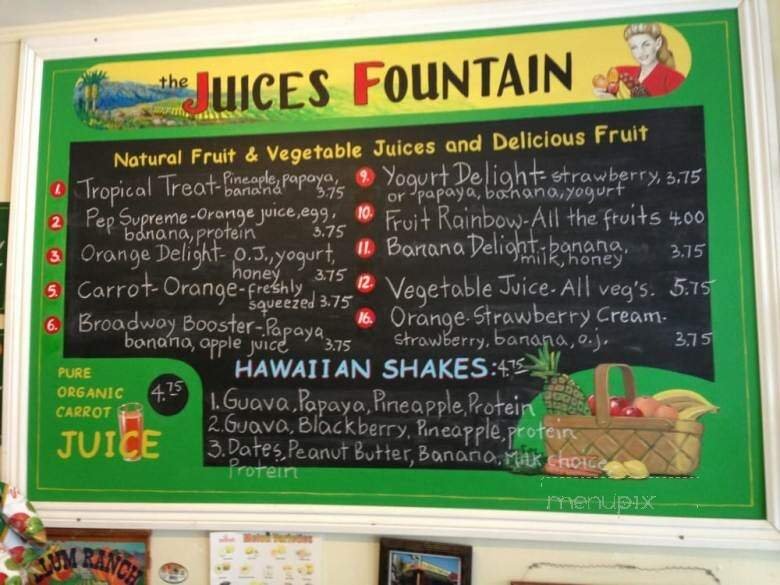 the JUICES FOUNTAIN
Natural Fruit & Vegetable Juices and Delicious Fruit
1. Tropical Treat-Pineaple, papaya,
banana 3.75
2 Pep Supreme-Orange juice, egg,
banana, protein 3.75
3. Orange Delight- O.J., yogurt,
honey 3.75
5. Carrot-Orange-freshly
squeezed 3.75
6. Broadway Booster-Papaya
banana, apple juice 3.75
9. Yogurt Delight-strawberry, 3.75
or papaya, banana, yogurt
10. Fruit Rainbow-All the fruits 4.00
11. Banana Delight-banana,
milk, honey 3.75
12. Vegetable Juice-All veg's. 5.75
16. Orange-Strawberry Cream-
strawberry, banana, o.j. 3.75
PURE
ORGANIC
CARROT
JUICE
4.75
HAWAIIAN SHAKES: 4.75
1. Guava, Papaya, Pineapple, Protein
2. Guava, Blackberry, Pineapple, protein
3. Dates, Peanut Butter, Banana, Milk choice
Protein
menupix
LLUM RANCH
Melon Varieties